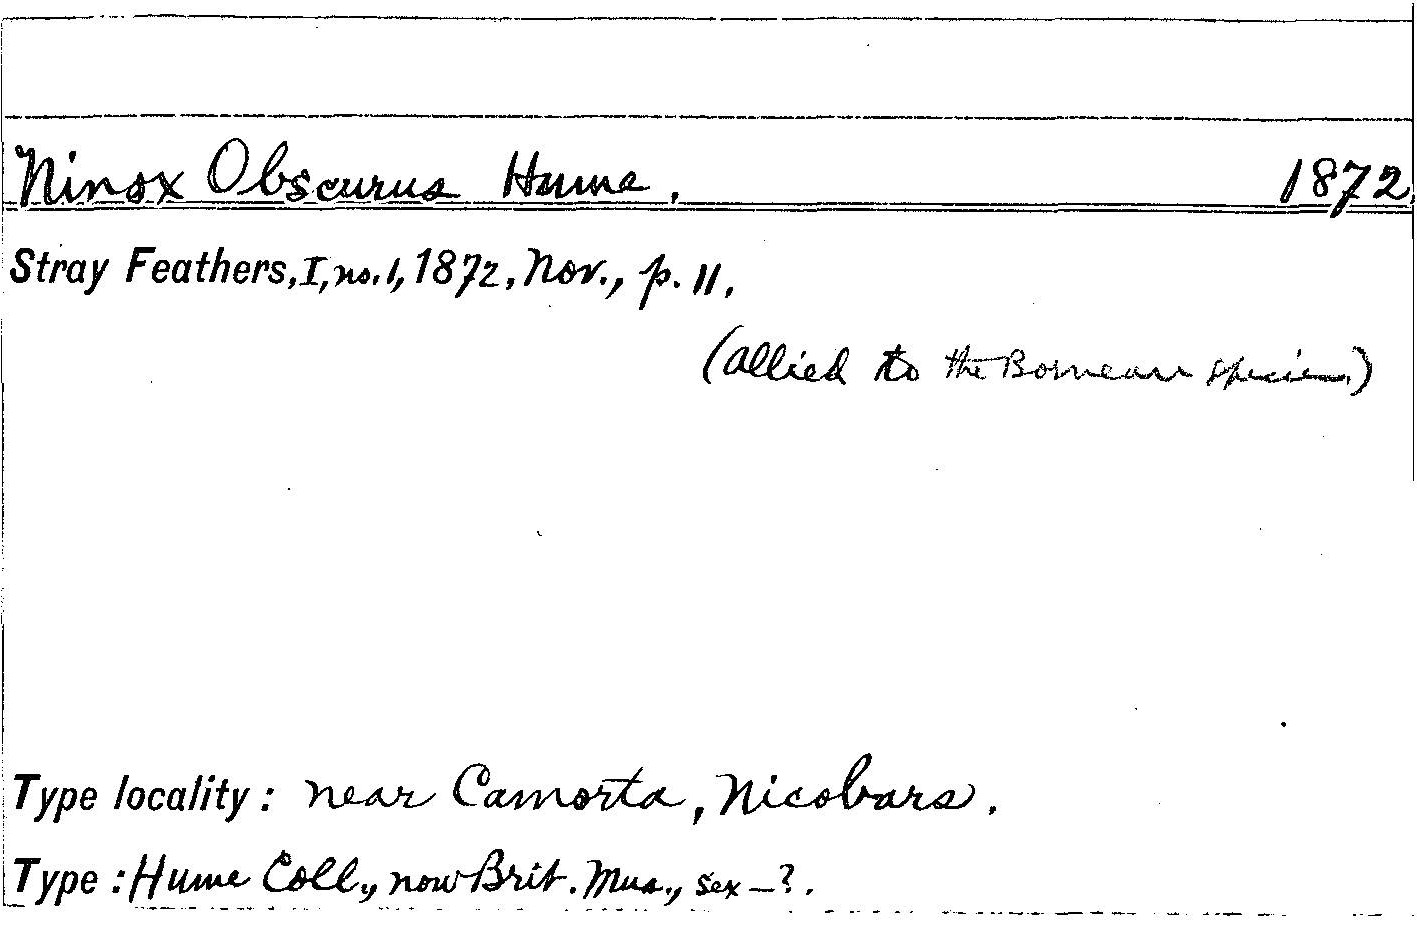 Ninox Obscurus Hume. 1872.
Stray Feathers, I, no. 1, 1872, Nov., p. 11.
(allied to the Bornean species.)
Type locality: near Camorta, Nicobars.
Type: Hume Coll., now Brit. Mus., sex—?.